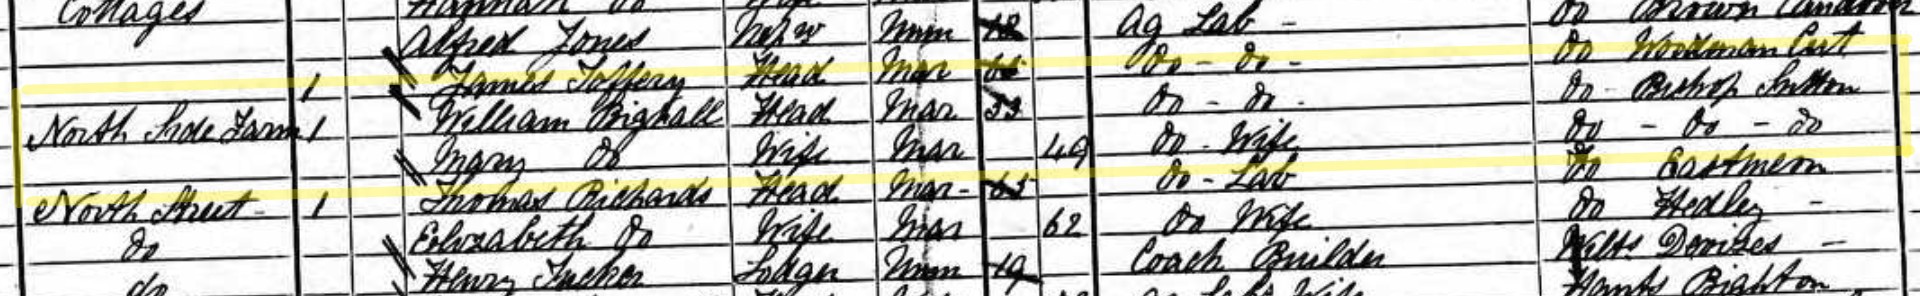 Cottages Hannah Do Wife
Alfred Jones Nephw Unm 18 Ag Lab - Do Brown Candover
1 James Toffery Head Mar Do - Do - Do Woodman Cert
North Side Farm 1 William Bighall Head Mar 53 Do - Do - Do - Bishop Sutton
Mary Do Wife Mar 49 Do - Wife Do - Do - Do
North Street - 1 Thomas Richards Head Mar - 63 Do - Lab Do Eastmeon
Do Elizabeth Do Wife Mar 62 Do Wife Do Hedley -
do Henry Tucker Lodger Unm 19 Coach Builder Wilts Devizes -
Ag Labs Wife Hants Bighton